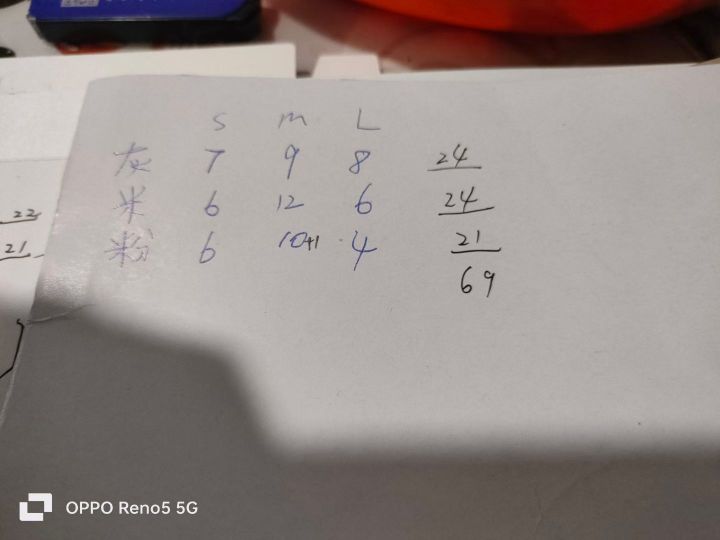 S M L
灰 7 9 8 24
米 6 12 6 24
粉 6 10+1 4 21
69
22
21
OPPO Reno5 5G